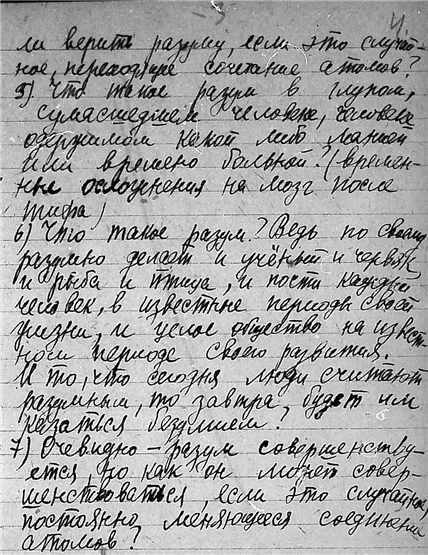 4.
ли верить разуму, если это случай-
ное, переходящее сочетание атомов?
5) Что такое разум в глупом,
сумасшедшем человеке, человеке
одержимом какой либо манией
или времено больной? (времен-
ные осложнения на мозг после
тифа)
6) Что такое разум? Ведь по своему
разумно делает и учёный и червяк
и рыба и птица, и почти каждый
человек, в известные периоды своей
жизни, и целое общество на извест-
ном периоде своего развития.
И то, что сегодня люди считают
разумным, то завтра, будет им
казаться безумием.
7) Очевидно – разум совершенству-
ется, но как он может совер-
шенствоваться, если это случайное,
постоянно меняющееся соединение
атомов?